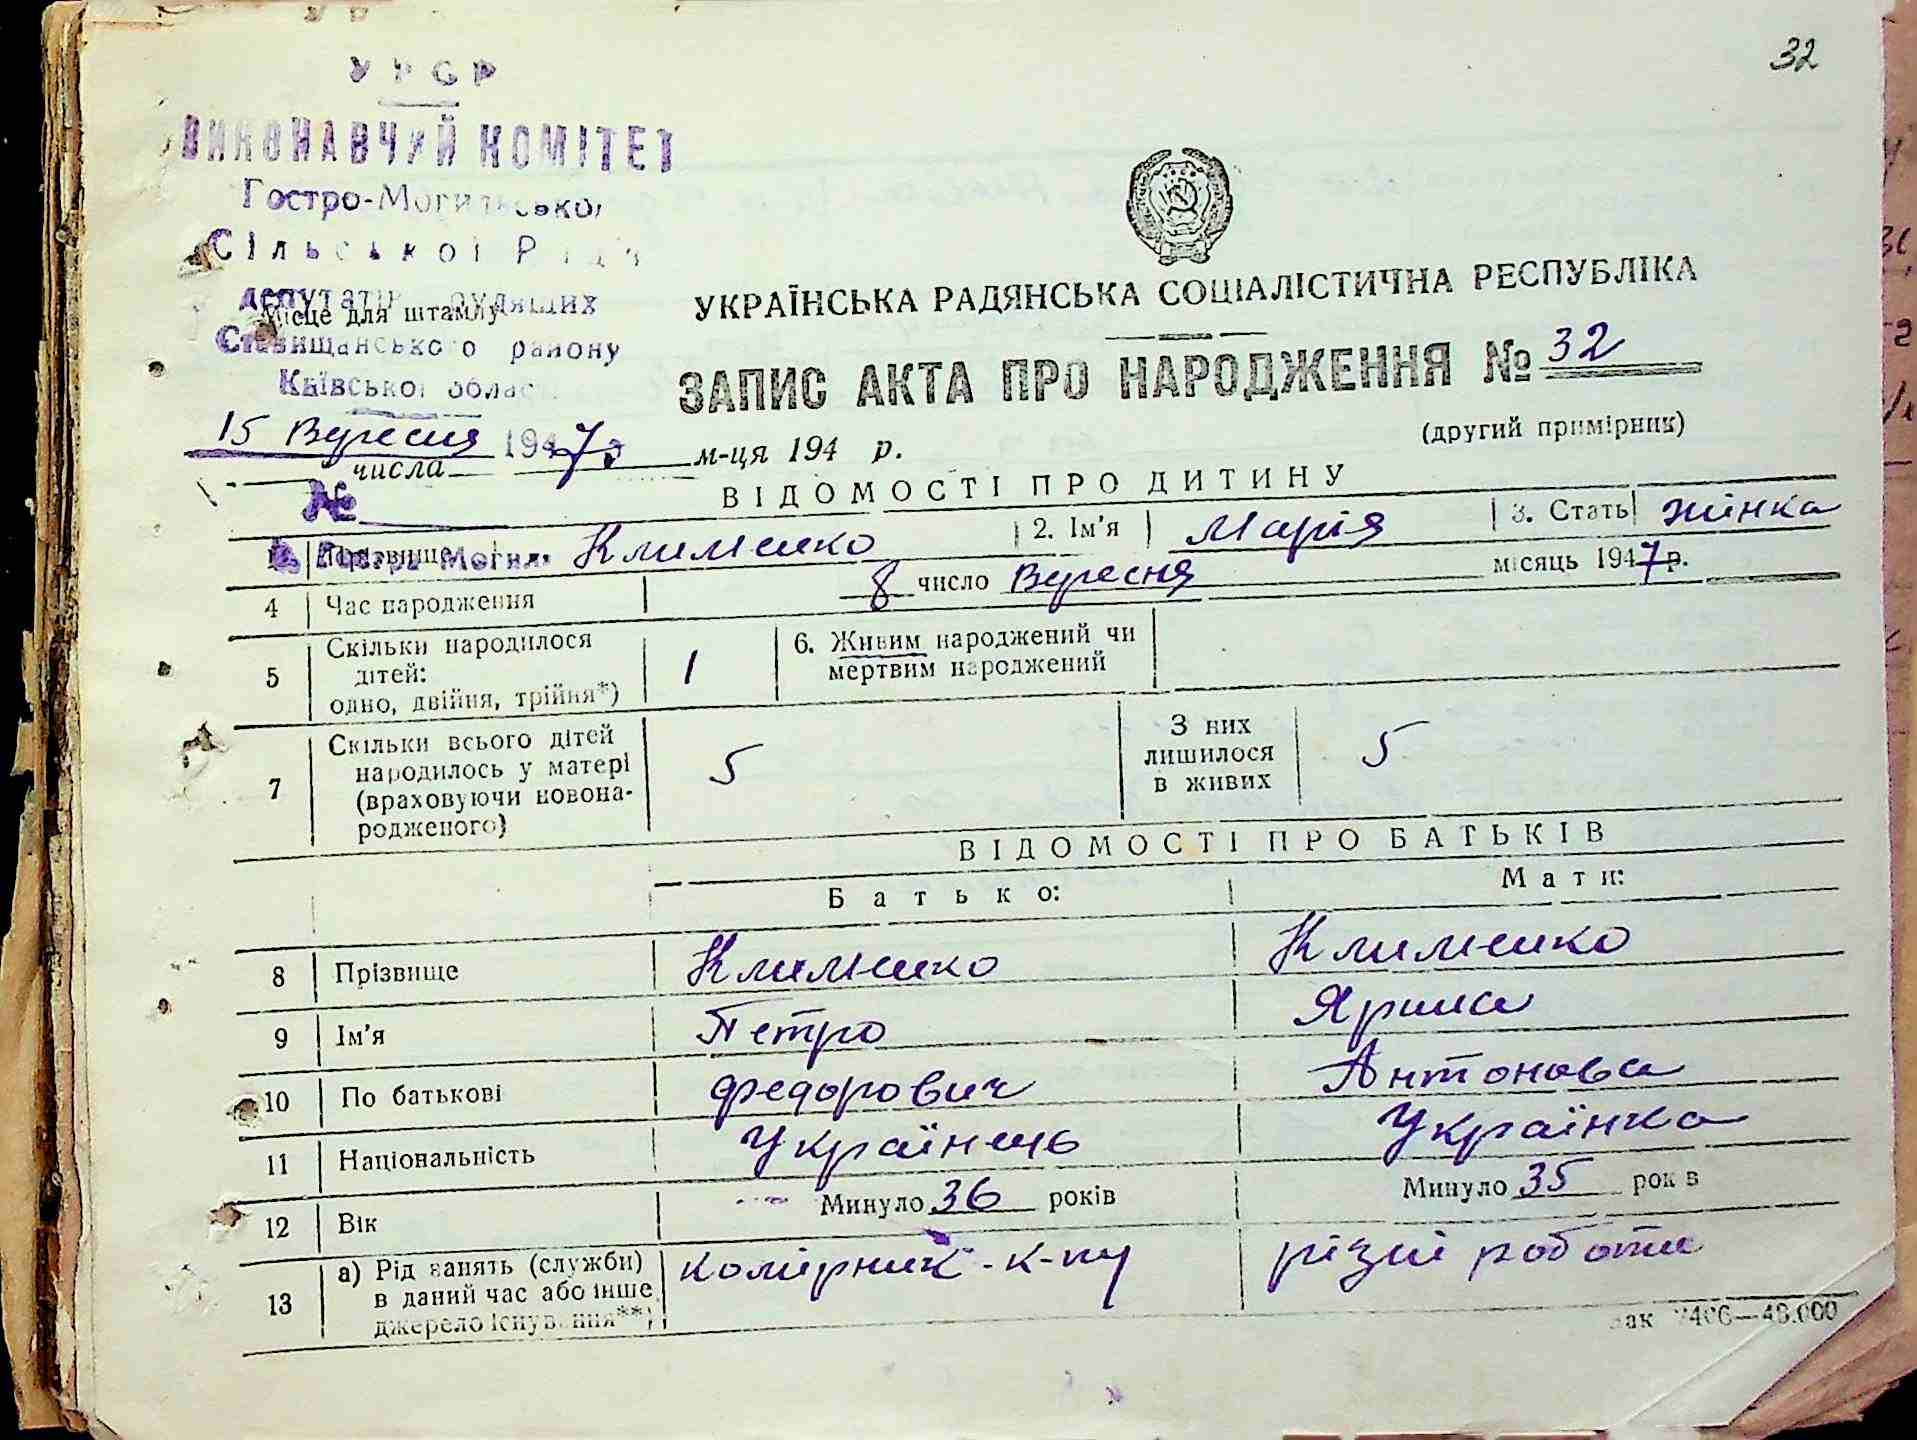 32
УРСР
ВИКОНАВЧИЙ КОМІТЕТ
Гостро-Могильської
Сільської Ради
депутатів трудящих
Місце для штампу
Ставищанського району
Київської област
15 Вересня 1947 р
УКРАЇНСЬКА РАДЯНСЬКА СОЦІАЛІСТИЧНА РЕСПУБЛІКА
ЗАПИС АКТА ПРО НАРОДЖЕННЯ № 32
(другий примірник)
числа м-ця 194 р.
№
ВІДОМОСТІ ПРО ДИТИНУ
1 Прізвище Клименко 2. Ім'я Марія 3. Стать жінка
Гостра Могила
4 Час народження 8 число Вересня місяць 1947 р.
5 Скільки народилося дітей: одно, двійня, трійня*) 1 6. Живим народжений чи мертвим народжений
7 Скільки всього дітей народилось у матері (враховуючи новонародженого) 5 З них лишилося в живих 5
ВІДОМОСТІ ПРО БАТЬКІВ
Батько: Мати:
8 Прізвище Клименко Клименко
9 Ім'я Петро Ярина
10 По батькові Федорович Антонова
11 Національність Українець Українка
12 Вік Минуло 36 років Минуло 35 років
13 а) Рід занять (служби) в даний час або інше джерело існування**) комірник-к-пу різні роботи
зак 7406—48.000